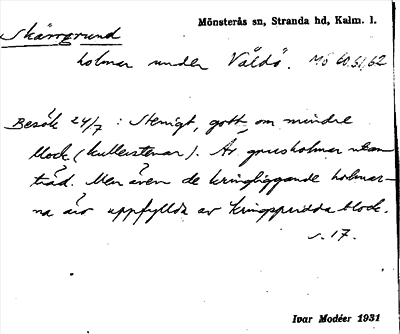 Mönsterås sn, Stranda hd, Kalm. l.
Skärrgrund
holmar under Våldö. Mö 60, 51, 62
Besök 24/7 : Stenigt, gott om mindre
block (kullerstenar). Är grusholmar utan
träd. Men även de kringliggande holmar-
na äro uppfyllda av kringspridda block.
s. 17.
Ivar Modéer 1931